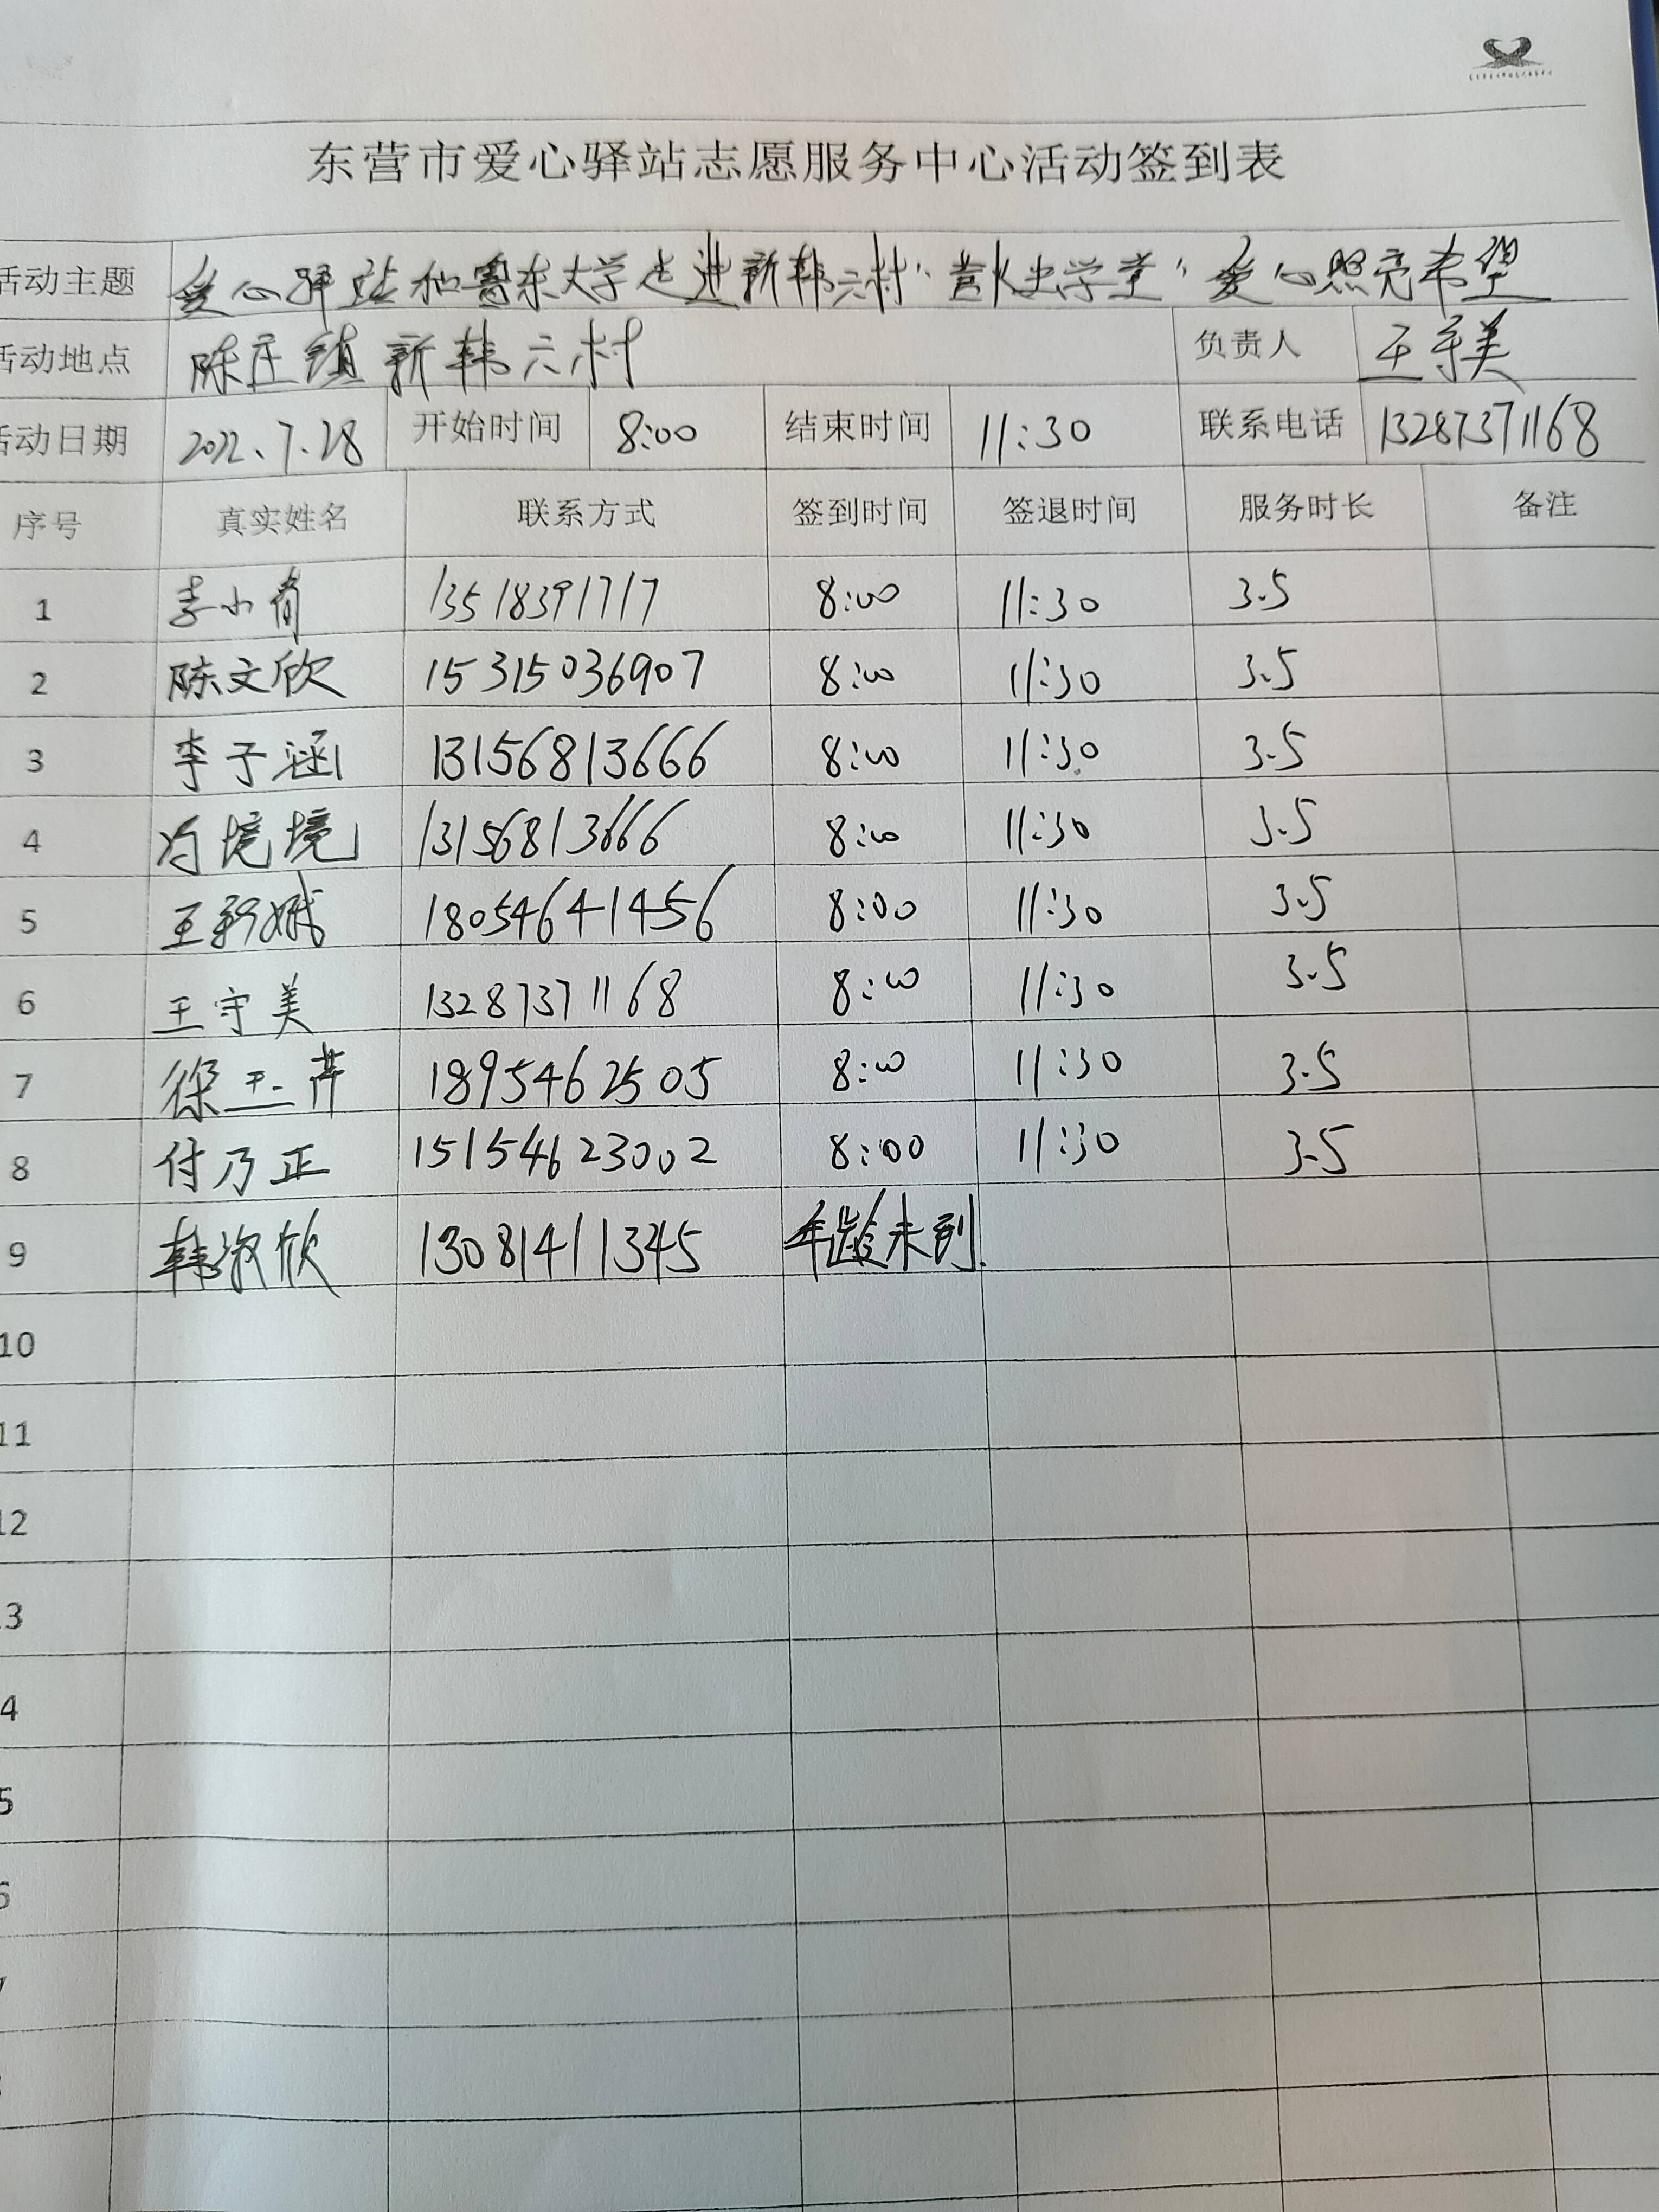 东营市爱心驿站志愿服务中心活动签到表
活动主题 爱心驿站和鲁东大学走进新韩六村“萤火虫学堂”爱心照亮希望
活动地点 陈庄镇新韩六村 负责人 王守美
活动日期 2022.7.28 开始时间 8:00 结束时间 11:30 联系电话 13287371168
序号 真实姓名 联系方式 签到时间 签退时间 服务时长 备注
1 李小青 13518391717 8:00 11:30 3.5
2 陈文欣 15315036907 8:00 11:30 3.5
3 李子涵 13156813666 8:00 11:30 3.5
4 境境 13156813666 8:00 11:30 3.5
5 王 娥 18054641456 8:00 11:30 3.5
6 王守美 13287371168 8:00 11:30 3.5
7 徐玉芹 1895462505 8:00 11:30 3.5
8 付乃正 15154623002 8:00 11:30 3.5
9 韩淑欣 13081411345 年龄未到.
10
11
12
13
4
5
6